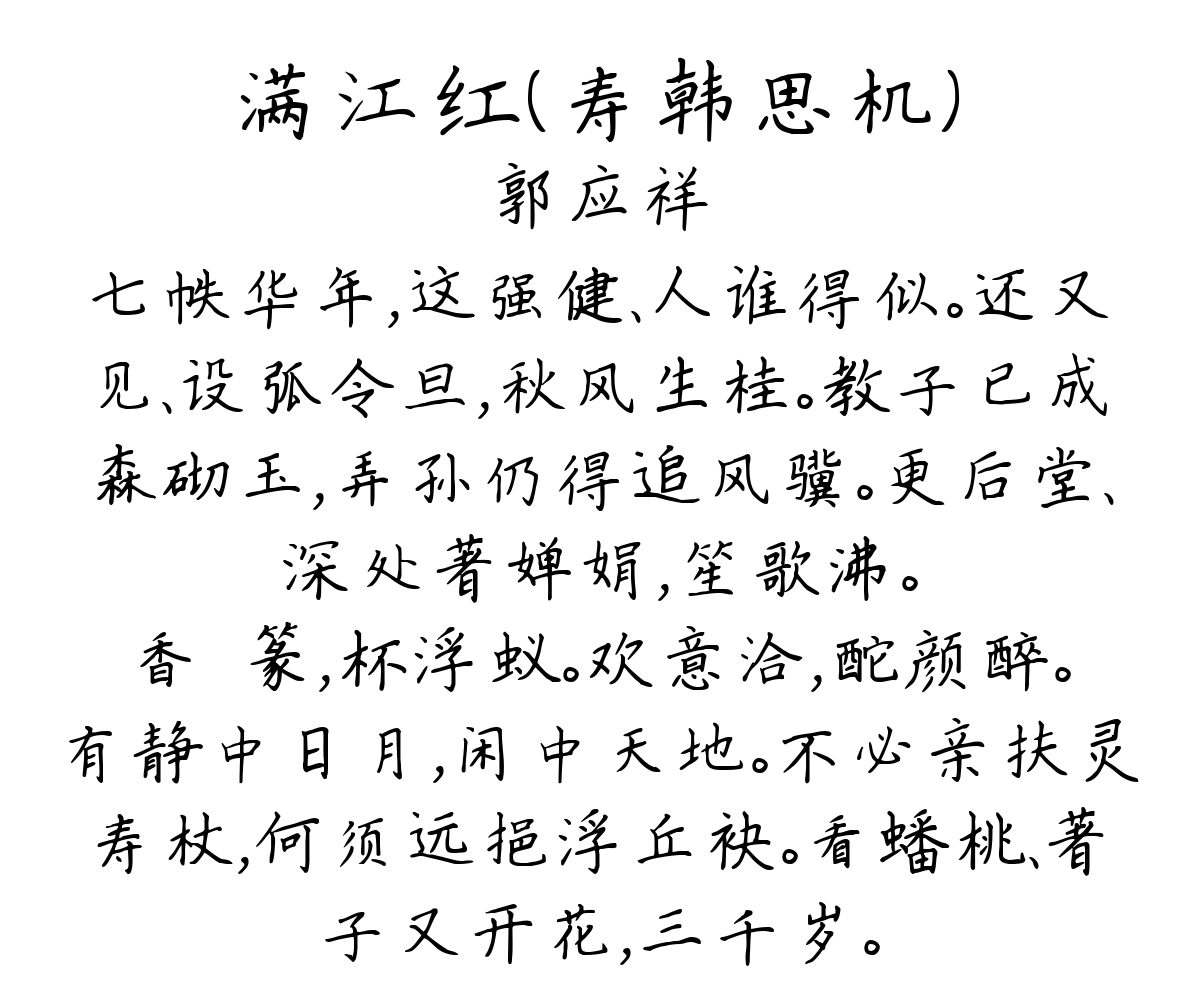 满江红(寿韩思机)
郭应祥
七帙华年,这强健、人谁得似。还又
见、设弧令旦,秋风生桂。教子已成
森砌玉,弄孙仍得追风骥。更后堂、
深处著婵娟,笙歌沸。
香 篆,杯浮蚁。欢意洽,酡颜醉。
有静中日月,闲中天地。不必亲扶灵
寿杖,何须远挹浮丘袂。看蟠桃、著
子又开花,三千岁。